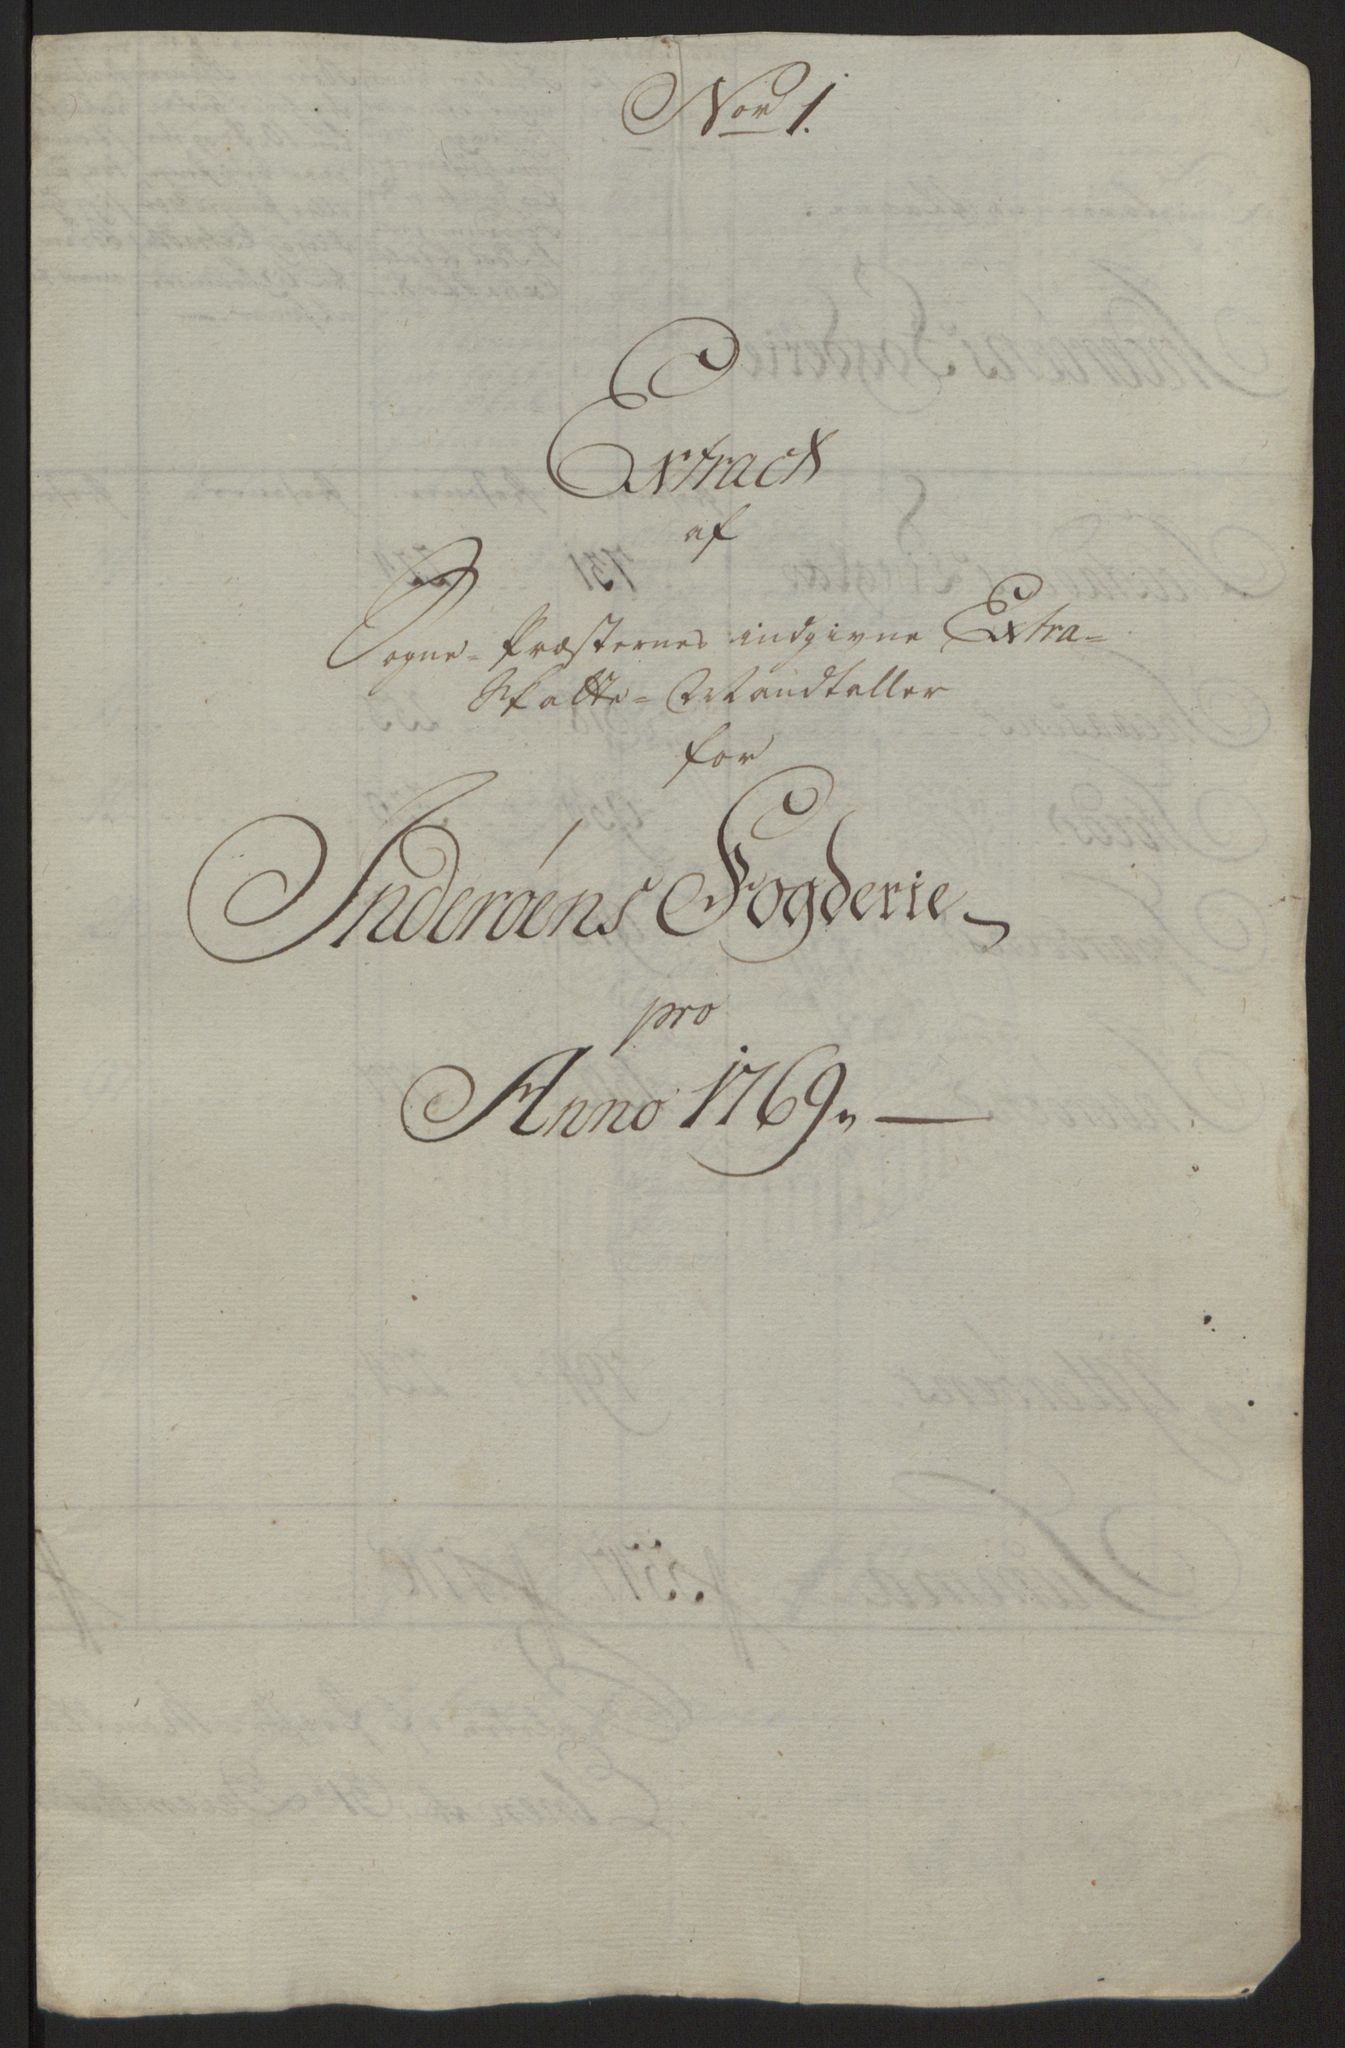 Nor 1.
Extract
af
Sogne-Præsternes indgivne Extra-
Skatte-Mandtaller
for
Inderøens Fogderie
pro
Anno 1769.